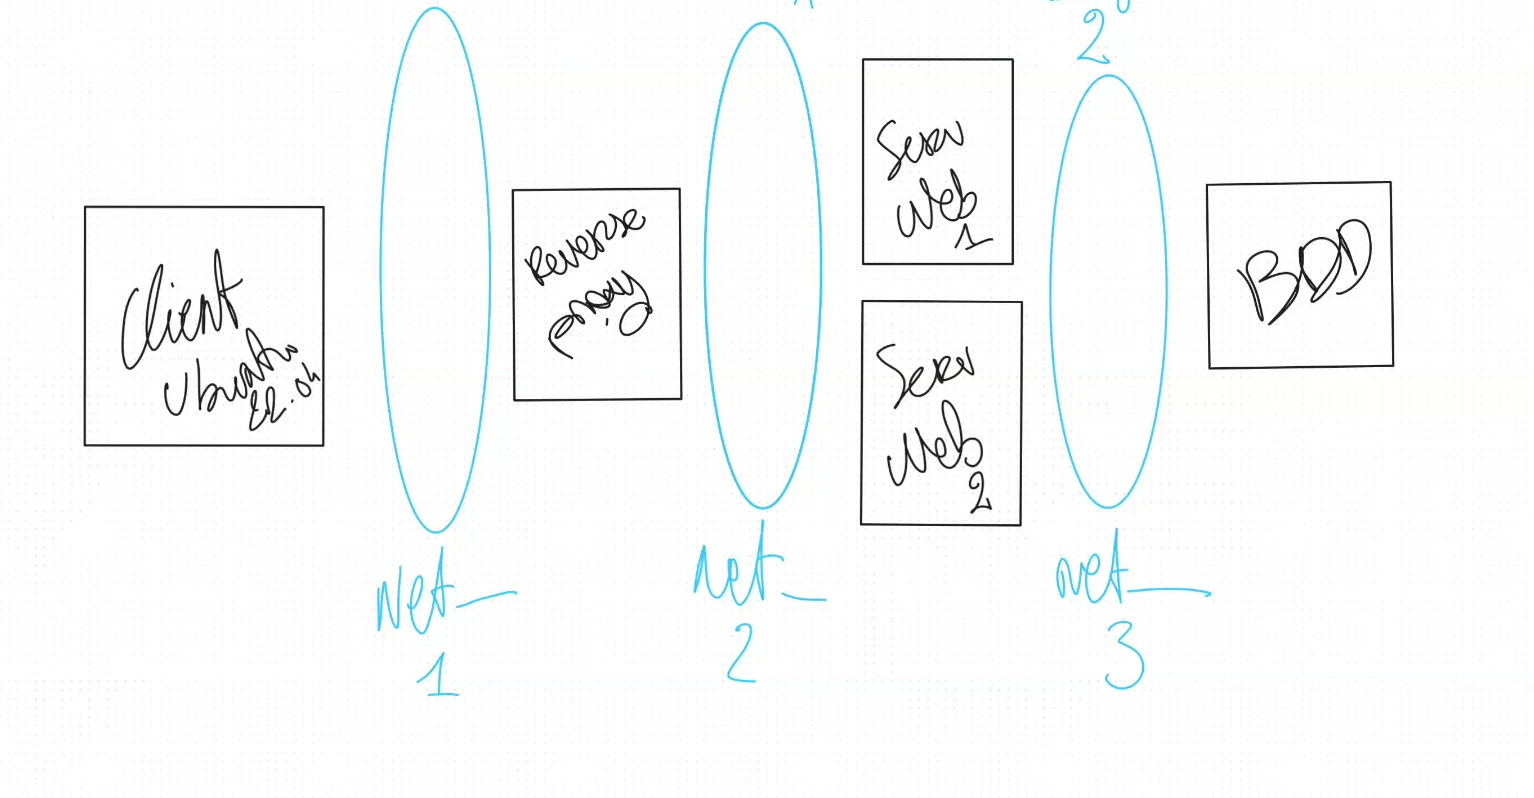 2
Client
Ubuntu
22.04
Reverse
proxy
Serv
Web
1
Serv
Web
2
BDD
Net_
1
net_
2
net_
3